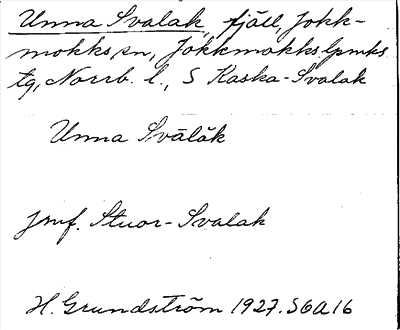 Unna Svalak, fjäll, Jokk-
mokks sn, Jokkmokks lpmks
tg, Norrb. l., S Kaska-Svalak
Unna Svālăk
Jmf. Stuor-Svalak
H. Grundström 1927. S6A16